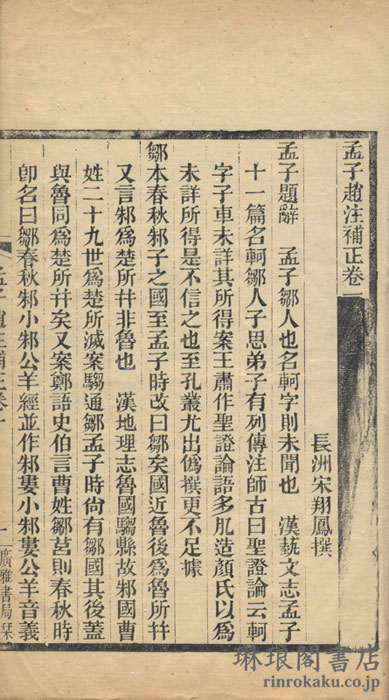 孟子趙注補正卷一
長洲宋翔鳳撰
孟子題辭　孟子鄒人也名軻字則未聞也　漢藝文志孟子
十一篇名軻鄒人子思弟子有列傳注師古曰聖證論云軻
字子車未詳其所得案王肅作聖證論語多肊造顏氏以爲
未詳所得是不信之也至孔叢尤出僞撰更不足據
鄒本春秋邾子之國至孟子時改曰鄒矣國近魯後爲魯所幷
又言邾爲楚所幷非魯也　漢地理志魯國騶縣故邾國曹
姓二十九世爲楚所滅案騶通鄒孟子時尙有鄒國其後蓋
與魯同爲楚所幷矣又案鄭語史伯言曹姓鄒莒則春秋時
卽名曰鄒春秋邾小邾公羊經並作邾婁小邾婁公羊音義
孟子趙注補正卷一
一
廣雅書局栞
琳琅閣書店
rinrokaku.co.jp